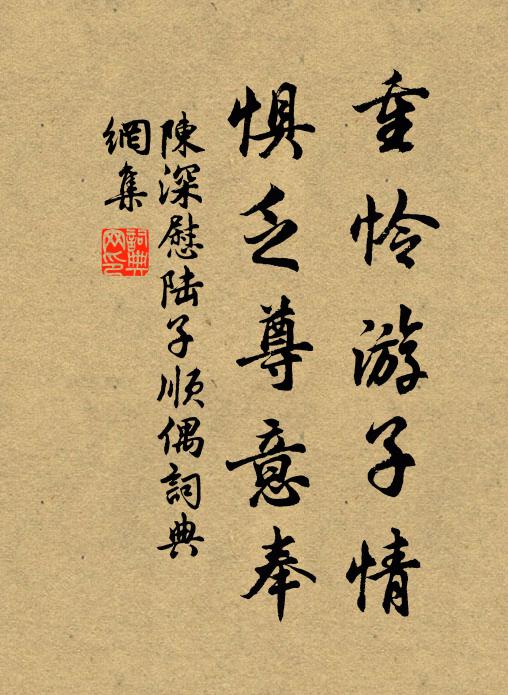 重怜游子情
惧乏尊意奉
陳深慰陆子顺偶詞典
網集
詞典
网印